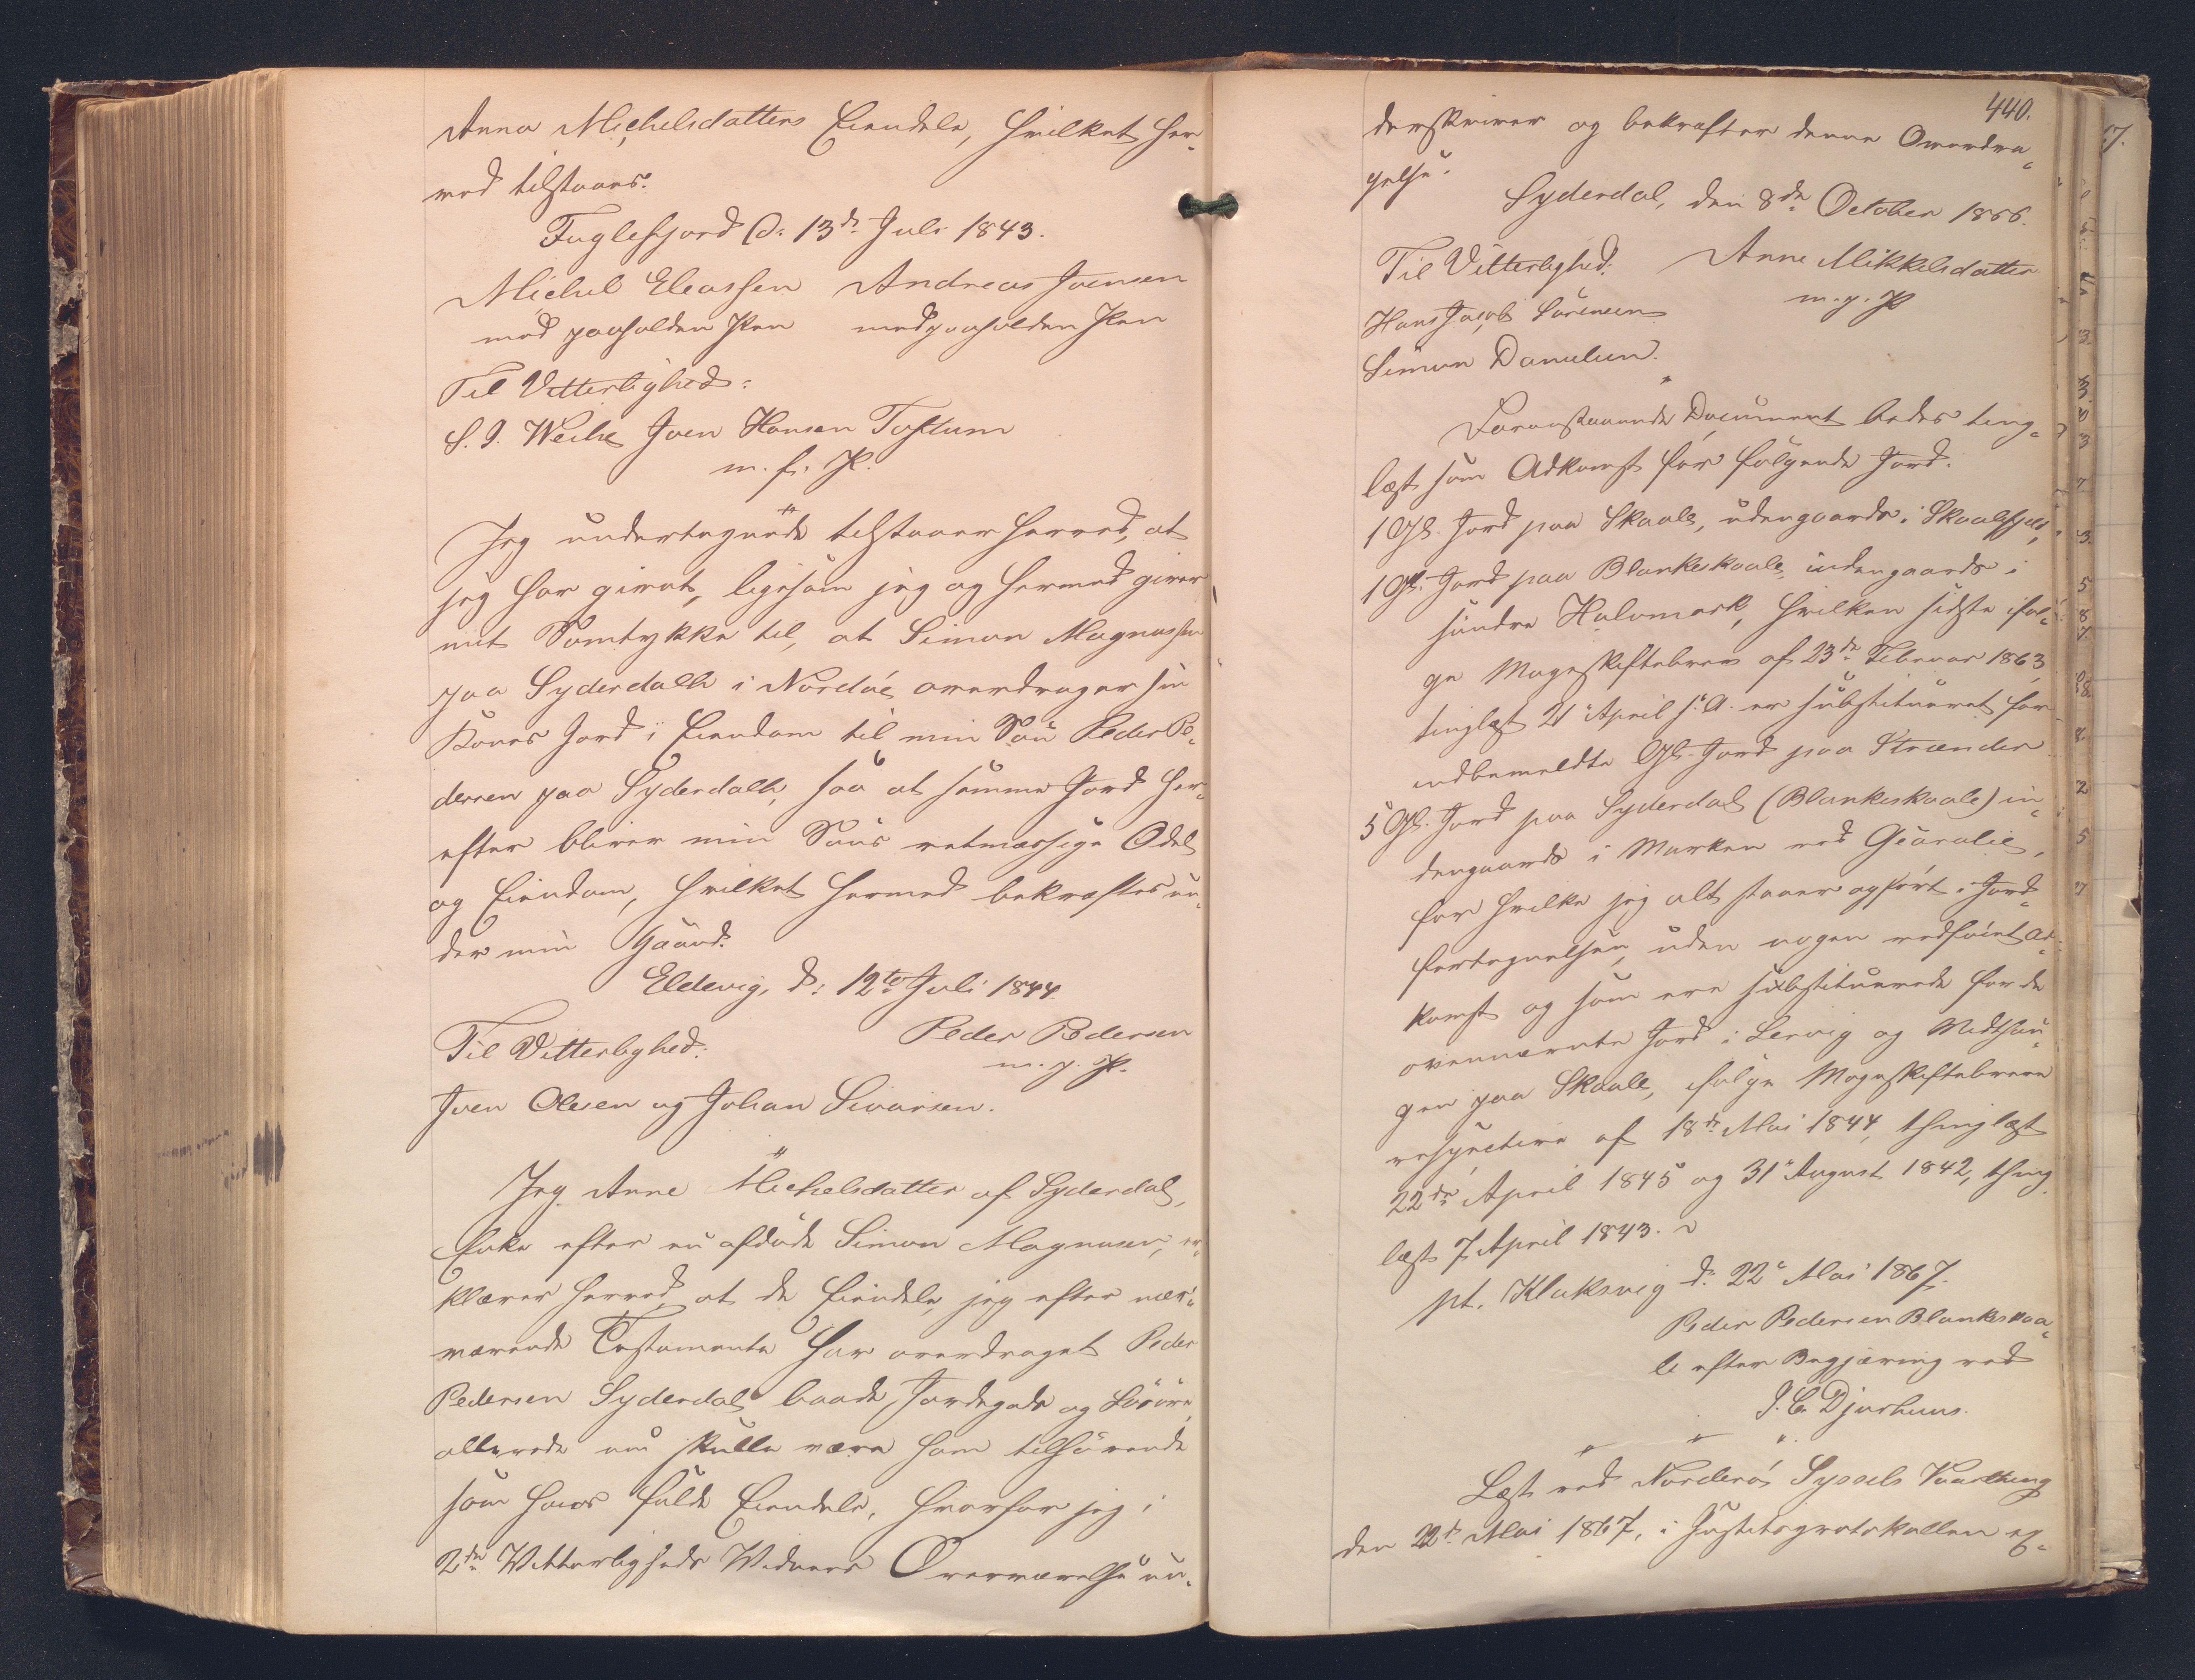 Anna Michelsdatters Eiendele, hvilket her-
ved tilstaaes.
Fuglefjord D. 13de Juli 1843.
Michel Eleassen Andreas Joensen
med paaholden Pen med paaholden Pen
Til Vitterlighed:
S. J. Weihe Joen Hansen Toftum
m. f. P.
Jeg undertegnede tilstaaer herved, at
jeg har givet, ligesom jeg og hermed giver
mit Samtykke til, at Simon Magnussen
paa Syderdalle i Nordöe overdrager sin
Kones Jord i Eiendom til min Sön Peder Pe-
dersen paa Syderdalle, saa at samme Jord her-
efter bliver min Söns retmæssige Odel
og Eiendom, hvilket hermed bekræftes un-
der min Haand.
Eldevig, d: 12te Juli 1844.
Til Vitterlighed: Peder Pedersen
m. p. P.
Joen Olesen og Johan Sivarsen.
Jeg Anne Michelsdatter af Syderdal,
Enke efter nu afdöde Simon Magnusen, er-
klærer herved, at de Eiendele jeg efter nær-
værende Testamente har overdraget Peder
Pedersen Syderdal baade Jordegods og Lösöre
allerede nu skulle være ham tilhörende
som hans fulde Eiendele, hvorfor jeg i
2de Vitterligheds Vidners Overværelse un-
440.
derskriver og bekræfter denne Overdra-
gelse.
Syderdal, den 8de October 1866.
Til Vitterlighed: Anne Mikkelsdatter
m. p. P
Hans Jacob Sörensen
Simon Danielsen.
Foranstaaende Document bedes ting-
læst som Adkomst for fölgende Jord.
1 Gl. Jord paa Skaale, udengaards i Skaalefjeld,
1 Gl. Jord paa Blankeskaale indengaards i
söndre Halvmark, hvilken sidste iföl-
ge Mageskiftebrev af 23de Februar 1863
tinglæst 21 April s. A. er substitueret for
indbemeldte Gl. Jord paa Strænder
5 Gl. Jord paa Syderdal (Blankeskaale) in-
dengaards i Marken ved
for hvilke jeg alt staaer opfört i Jord-
fortegnelsen uden nogen vedföiet Ad-
komst og som ere substituerede for de
ovennævnte Jord i Lervig og
gen paa Skaale, ifölge Mageskiftebreve
respective af 18de Mai 1844, thinglæst
22de April 1845 og 31 August 1842, thing-
læst 7 April 1843.
pt. Klaksvig d. 22 Mai 1867.
Peder Pedersen Blankeskaa-
le efter Begjæring ved
J. C. Djurhuus.
Læst ved Norderö Syssels Vaarthing
den 22de Mai 1867, i Justitsprotokollen ex-